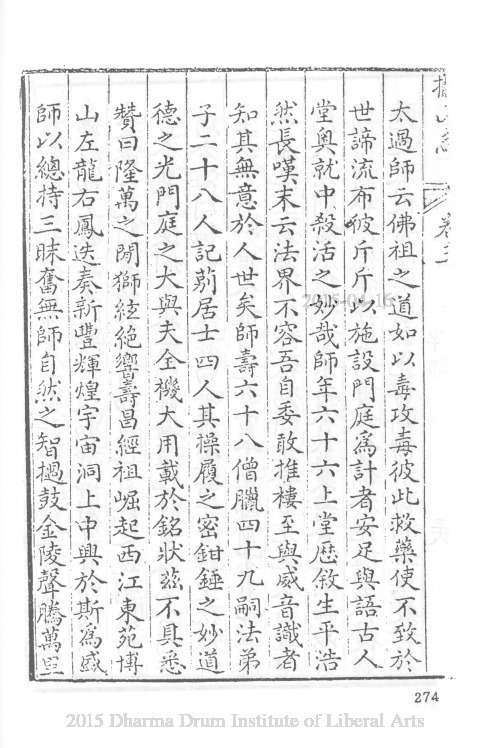 太過師云佛祖之道如以毒攻毒彼此救藥使不致於
世諦流布彼斤斤以施設門庭爲計者安足與語古人
堂奧就中殺活之妙哉師年六十六上堂歷敘生平浩
然長嘆末云法界不容吾自委敢推樓至與威音識者
知其無意於人世矣師壽六十八僧臘四十九嗣法弟
子二十八人記莂居士四人其操履之密鉗錘之妙道
德之光門庭之大與夫全機大用載於銘狀茲不具悉
贊曰隆萬之開獅絃絕響壽昌經祖崛起西江東苑博
山左龍右鳳迭奏新豐輝煌宇宙洞上中興於斯爲盛
師以總持三昧奮無師自然之智撾鼓金陵聲騰萬里
274
2015 Dharma Drum Institute of Liberal Arts